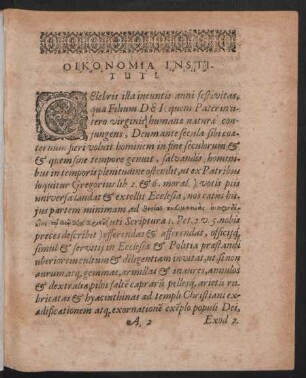 OIKONOMIA INSTI-
TUTI.
CElebris illa ineuntis anni festivitas,
qua Filium DEI quem Pater in u-
tero virginis humanæ naturæ con-
jungens, Deum ante secula sibi coæ-
ternum fieri voluit hominem in fine seculorum &
& quem sine tempore genuit, salvandis homini-
bus in temporis plenitudine ostendit, ut ex Patribus
loquitur Gregorius lib 2. & 6. moral.) votis piis
universa laudat & extollit Ecclesia, nos catini hu-
jus partem minimam ad
uti Scriptura 1. Pet. 2 v. 5. nobis
preces describit) offerendas & afferendas, officiisq;
simul & servitiis in Ecclesia & Politia præstandis
uberiorem curam & diligentiam invitat, ut si non
aurum atq; gemmas, armillas & inaures, annulos
& dextralia pilos saltẽ caprarũ pellesq; arietis ru-
bricatas & hyacinthinas ad templi Christiani ex-
ædificationem atq; exornationẽ exẽplo populi Dei,
A 2 Exod 2.